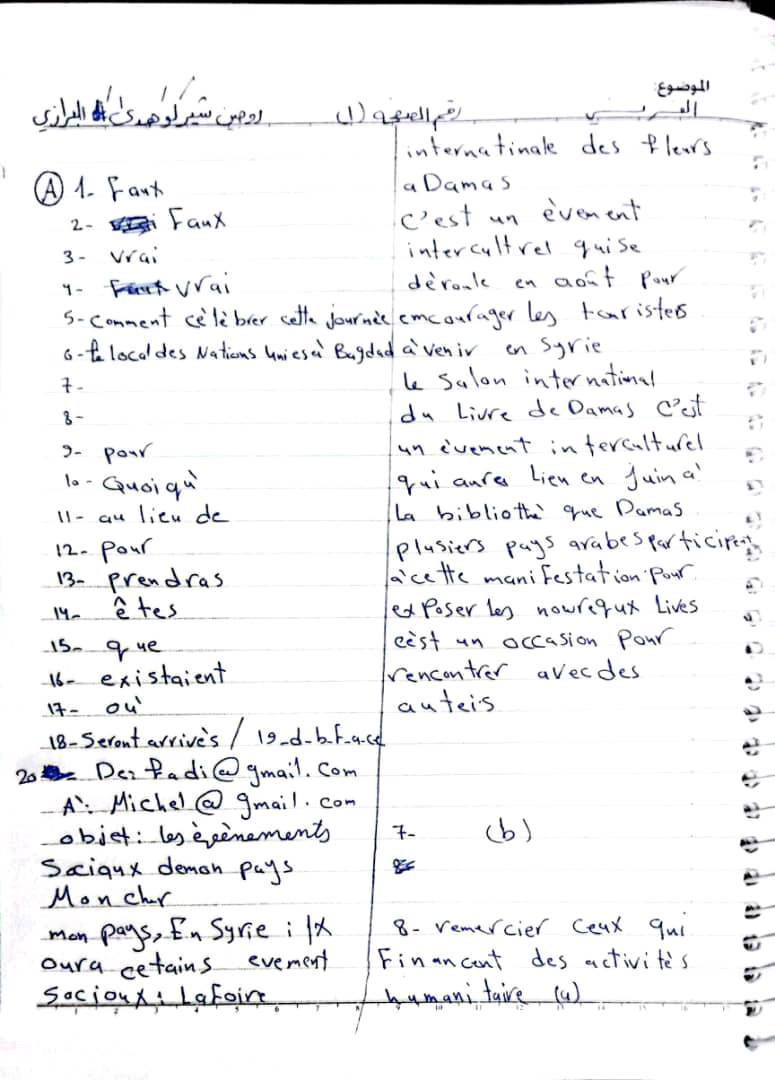 الموضوع:
رقم الصفحة (1)
A 1- Faux
2- Faux
3- vrai
4- vrai
5- Comment cèlèbrer cette journèe
6- le local des Nations Unies à Bagdad
7-
8-
9- pour
10- Quoi qù
11- au lieu de
12- pour
13- prendras
14- êtes
15- que
16- existaient
17- où
18- Seront arrivès / 19-d-b-f-a-c-e
20- De: fadi@gmail.com
A`: Michel@gmail.com
objet: les èvènements
Sociaux de mon pays
Mon cher
mon pays, En Syrie il
oura cetains evement
Socioux: La foire
internatinale des fleurs
a Damas
C'est un èvement
intercultrel qui se
dèroule en août pour
emcourager les touristes
à venir en Syrie
le Salon international
du Livre de Damas C'est
un èvement interculturel
qui aura Lieu en Juin à
La bibliothè que Damas
plusiers pays arabes participent
à cette manifestation pour
exposer les nouveaux Lives
cèst un occasion pour
rencontrer avec des
auteis
7- (b)
8- remercier ceux qui
Financent des activitès
humanitaire (a)